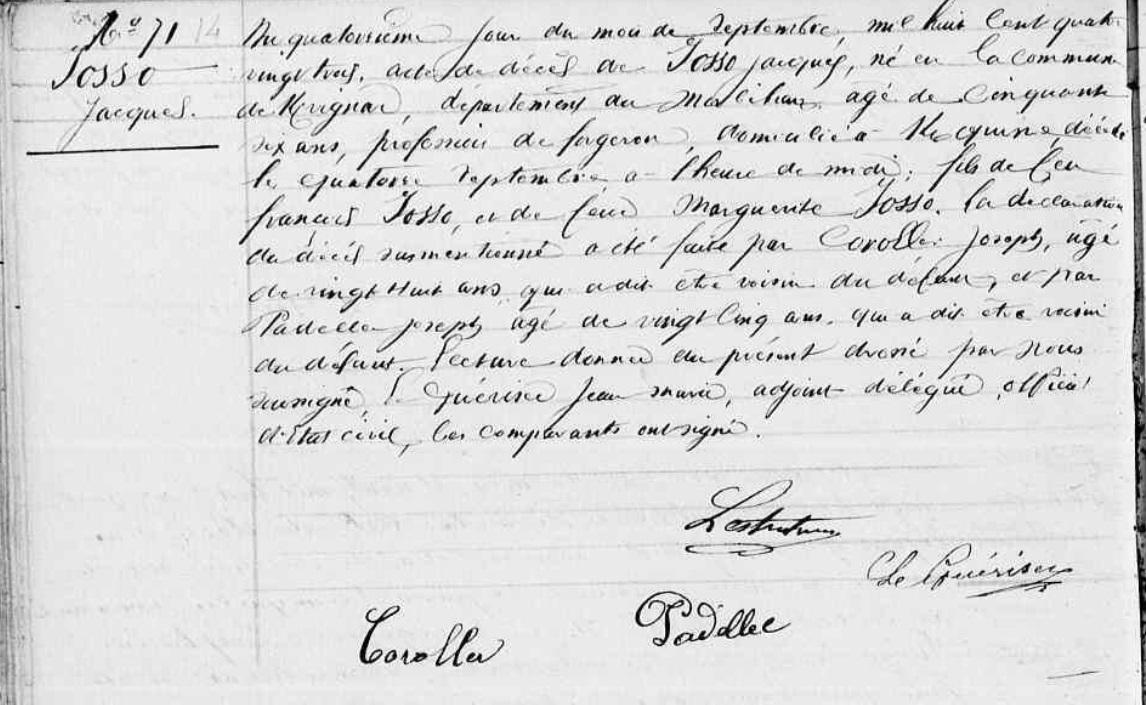 N.º 71
Josso
Jacques.
Du quatorzième jour du mois de Septembre, mil huit cent quatre
vingt trois, acte de décès de Josso Jacques, né en la commune
de Kvignac, département du Morbihan, agé de Cinquante
six ans, profession de forgeron, domicilié à décédé
le quatorze Septembre à l'heure de midi; fils de feu
françois Josso, et de feue Marguerite Josso. la déclaration
du décès susmentionné a été faite par Coroller Joseph, agé
de vingt huit ans, qui a dit être voisin du défunt, et par
Padellec Joseph agé de vingt Cinq ans, qui a dit être voisin
du défunt. Lecture donnée du présent dressé par nous
soussigné, Le Guériser Jean marie, adjoint délégué, officier
d'Etat civil, les comparants ont signé.
Le Guériser
Padellec
Coroller